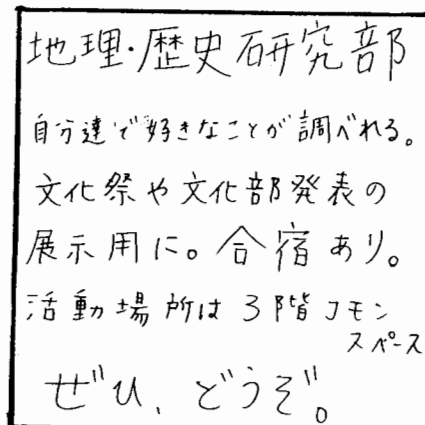 地理・歴史研究部
自分達で好きなことが調べれる。
文化祭や文化部発表の
展示用に。合宿あり。
活動場所は3階コモン
スペース
ぜひ、どうぞ。